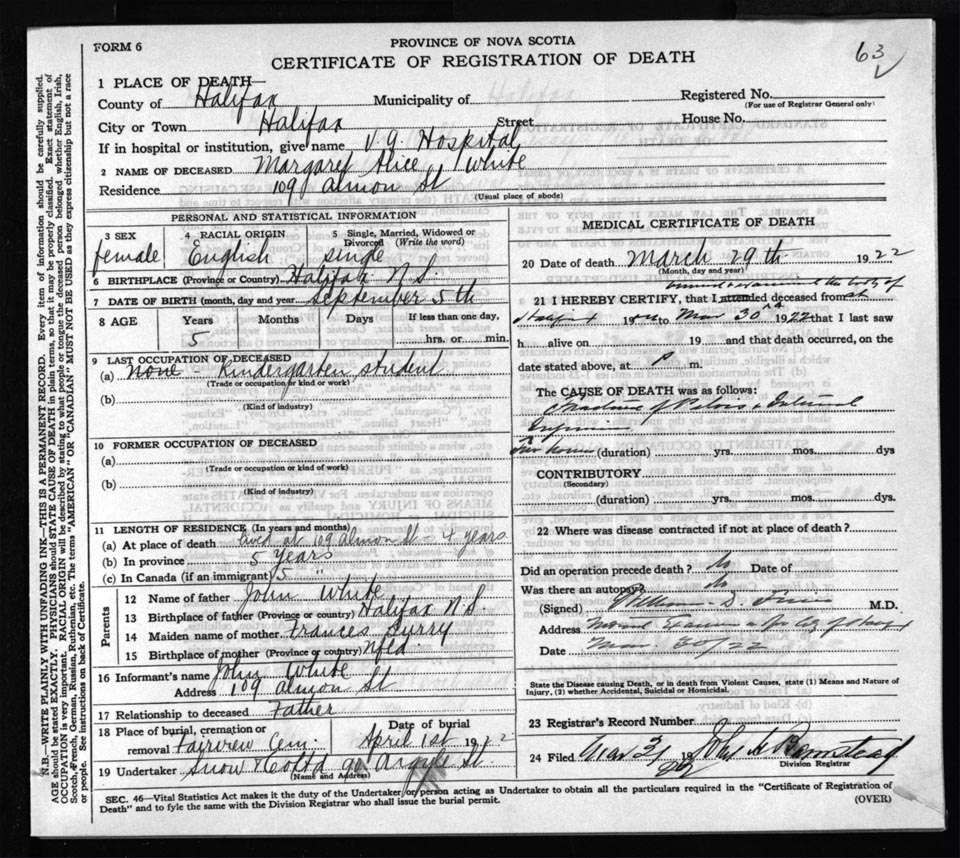 FORM 6
PROVINCE OF NOVA SCOTIA
CERTIFICATE OF REGISTRATION OF DEATH
63
1 PLACE OF DEATH—
County of Halifax Municipality of Registered No.
(For use of Registrar General only)
City or Town Halifax Street House No.
If in hospital or institution, give name V.G. Hospital
2 NAME OF DECEASED Margaret Alice White
Residence 109 Almon St
(Usual place of abode)
PERSONAL AND STATISTICAL INFORMATION
3 SEX 4 RACIAL ORIGIN 5 Single, Married, Widowed or Divorced (Write the word)
female English single
6 BIRTHPLACE (Province or Country) Halifax N S.
7 DATE OF BIRTH (month, day and year) September 5th
8 AGE Years Months Days If less than one day,
5 hrs. or min.
9 LAST OCCUPATION OF DECEASED
(a) None - Kindergarten student
(Trade or occupation or kind or work)
(b)
(Kind of industry)
10 FORMER OCCUPATION OF DECEASED
(a)
(Trade or occupation or kind or work)
(b)
(Kind of industry)
11 LENGTH OF RESIDENCE (In years and months)
(a) At place of death lived at 109 Almon St - 4 years
(b) In province 5 years
(c) In Canada (if an immigrant) 5 "
Parents
12 Name of father John White
13 Birthplace of father (Province or country) Halifax N S.
14 Maiden name of mother Frances Surry
15 Birthplace of mother (Province or country) Nfld.
16 Informant's name John White
Address 109 Almon St
17 Relationship to deceased Father
18 Place of burial, cremation or removal Fairview Cem. Date of burial April 1st 1922
19 Undertaker Snow & Co Ltd 90 Argyle St
(Name and Address)
MEDICAL CERTIFICATE OF DEATH
20 Date of death March 29th 1922
(Month, day and year)
21 I HEREBY CERTIFY, that I attended deceased from
viewed & examined the body of
at
Halifax 19 on Mar 30th 1922 that I last saw
h alive on 19 and that death occurred, on the
date stated above, at P m.
The CAUSE OF DEATH was as follows:
Fracture of Pelvis & Internal
Injuries
Few hours (duration) yrs. mos. dys
CONTRIBUTORY
(Secondary)
(duration) yrs. mos. dys.
22 Where was disease contracted if not at place of death?
Did an operation precede death? No Date of
Was there an autopsy? No
(Signed) William D. M.D.
Address Medical Examiner for City of Halifax
Date Mar. 30/22
State the Disease causing Death, or in death from Violent Causes, state (1) Means and Nature of
Injury, (2) whether Accidental, Suicidal or Homicidal.
23 Registrar's Record Number
24 Filed Mar 31 19 22 John H Barnstead
Division Registrar
SEC. 46—Vital Statistics Act makes it the duty of the Undertaker or person acting as Undertaker to obtain all the particulars required in the "Certificate of Registration of
Death" and to fyle the same with the Division Registrar who shall issue the burial permit.
(OVER)
N.B.—WRITE PLAINLY WITH UNFADING INK—THIS IS A PERMANENT RECORD. Every item of information should be carefully supplied.
AGE should be stated EXACTLY. PHYSICIANS should STATE CAUSE OF DEATH in plain terms, so that it may be properly classified. Exact statement of
OCCUPATION is very important. RACIAL ORIGIN will be described by stating to what people or tongue the deceased person belonged whether English, Irish,
Scotch, French, German, Russian, Ruthenian, etc. The terms "AMERICAN" OR "CANADIAN" MUST NOT BE USED as they express citizenship but not a race
or people. See instructions on back of Certificate.